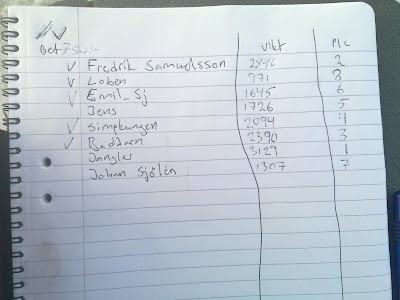 Bet 750:- Vikt Plc
✓ Fredrik Samuelsson 2846 2
✓ Loben 971 8
✓ Emil_Sj 1645 6
Jens 1726 5
✓ Simpkungen 2094 4
✓ Baddarn 2390 3
Jangler 3129 1
Johan Sjölén 1307 7